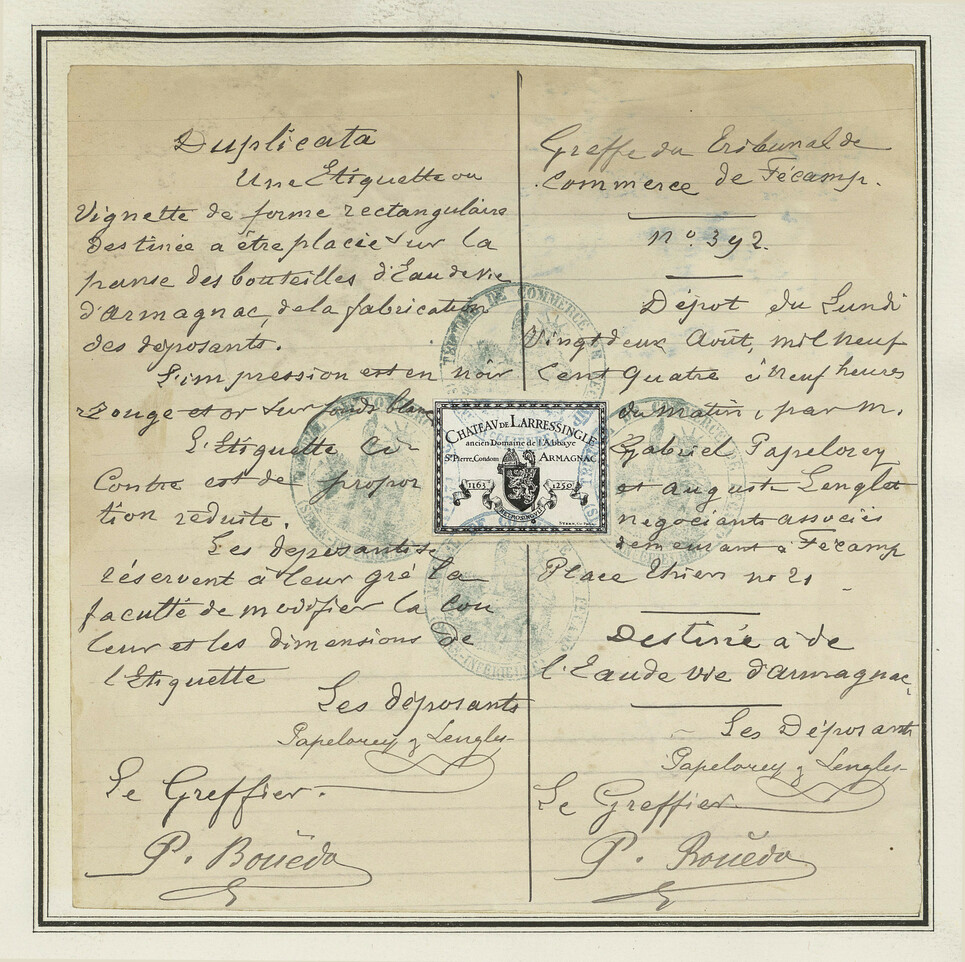 Duplicata
Une Etiquette ou
Vignette de forme rectangulaire
destinée a être placée sur la
panse des bouteilles d'Eau de vie
d'Armagnac, de la fabrication
des déposants.
L'impression est en noir
rouge et or sur fonds blanc
L'Etiquette ci-
Contre est de propor
tion réduite.
Les déposants se
réservent à leur gré la
faculté de modifier la cou
leur et les dimensions de
l'Etiquette
Les déposants
Papelorey & Lenglet
Le Greffier.
P. Bouëdo
CHATEAU DE LARRESSINGLE
ancien Domaine de l'Abbaye
St Pierre, Condom ARMAGNAC
1163 1250
Greffe du Tribunal de
Commerce de Fécamp.
no. 392.
Dépot du Lundi
Vingt deux Août, mil neuf
Cent quatre à neuf heures
du matin, par M.
Gabriel Papelorey
et Auguste Lenglet
négociants associés
demeurant à Fécamp
Place Thiers no 21
Destinée à de
l'Eau de vie d'Armagnac
Les Déposants
Papelorey & Lenglet
Le Greffier
P. Bouëdo
TRIBUNAL DE COMMERCE